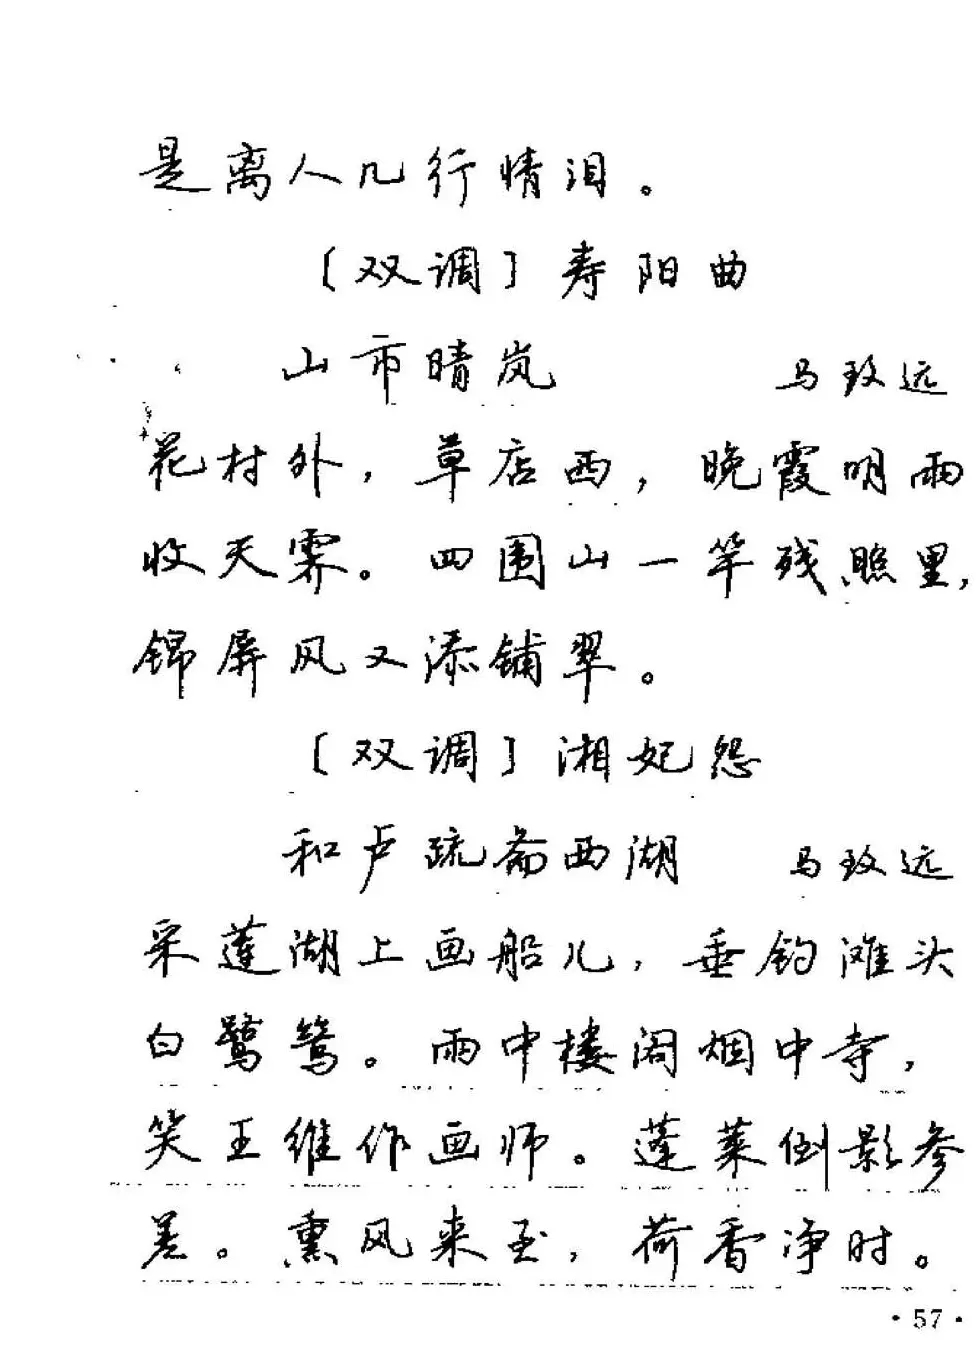 是离人几行情泪。
〔双调〕寿阳曲
山市晴岚 马致远
花村外，草店西，晚霞明雨
收天霁。四围山一竿残照里，
锦屏风又添铺翠。
〔双调〕湘妃怨
和卢疏斋西湖 马致远
采莲湖上画船儿，垂钓滩头
白鹭鸶。雨中楼阁烟中寺，
笑王维作画师。蓬莱倒影参
差。熏风来至，荷香净时。
·57·